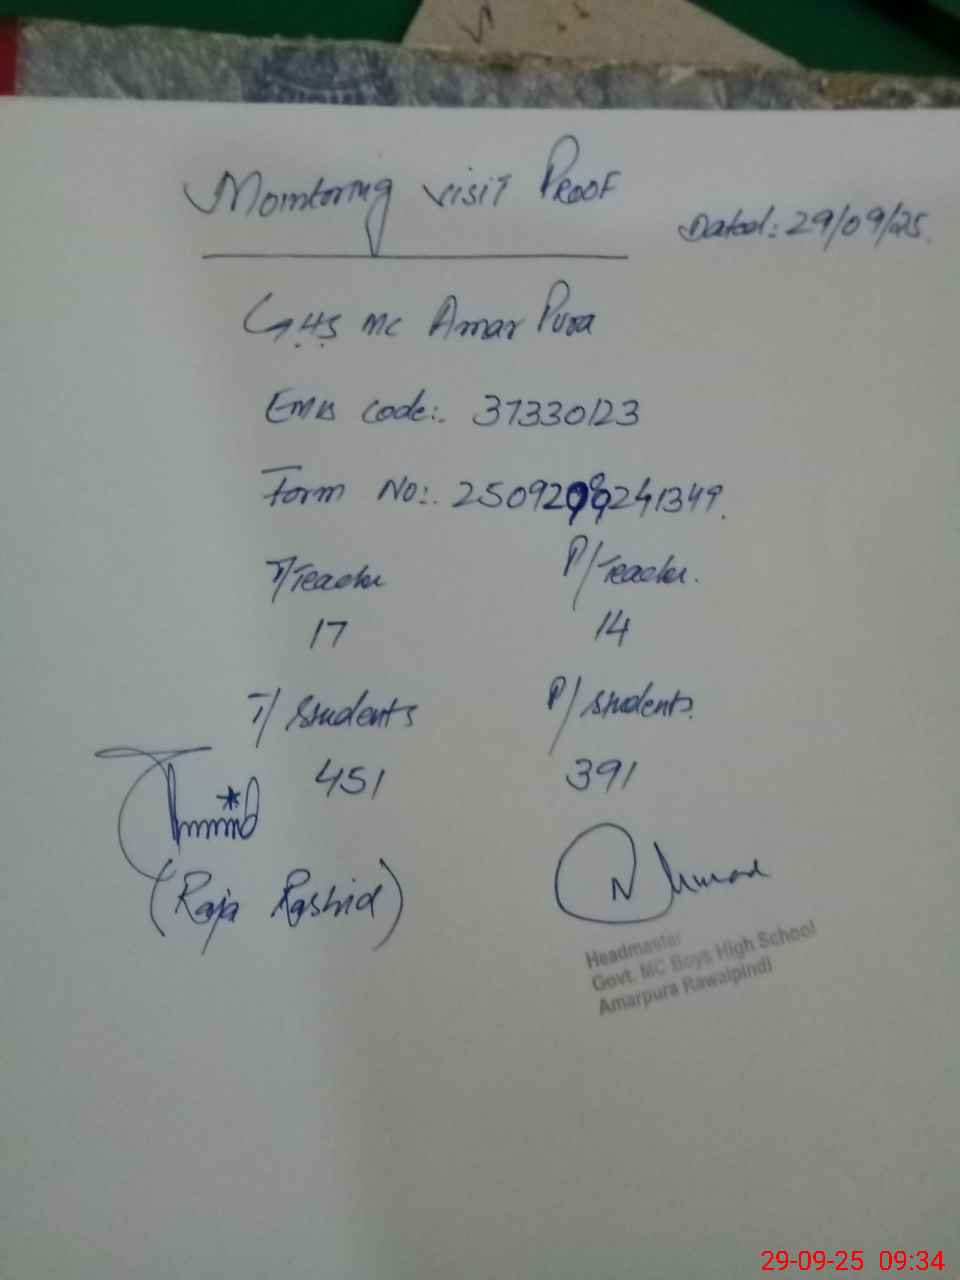 Monitoring visit Proof
Dated: 29/09/25.
G.H.S MC Amar Pura
Emis Code:. 37330123
Form No:. 2509299241349.
T/Teacher P/Teacher.
17 14
T/Students P/students.
451 391
(Raja Rashid)
Headmaster
Govt. MC Boys High School
Amarpura Rawalpindi
29-09-25 09:34